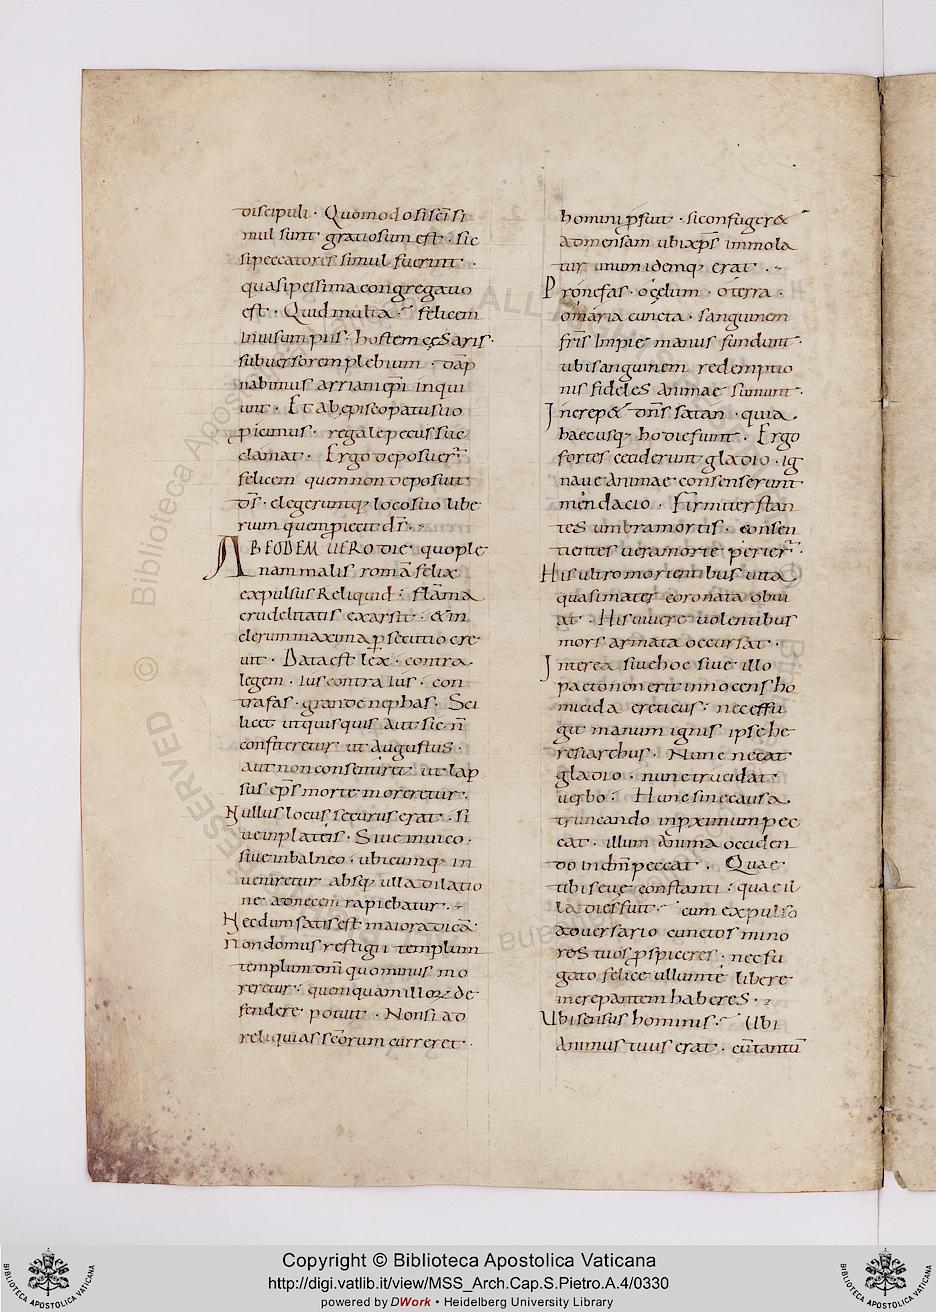 discipuli · Quomodo si sc̄i si
mul sunt gratiosum est · sic
si peccatores simul fuerint ·
quasi pessima congregatio
est · Quid multa felicem
inuisum piis · hostem cęsaris ·
subuersorem plebium · dāp
nabimus arriani ep̄i inqui
unt · Et ab episcopatu suo
picimus · regale pecus suc
clamat · Ergo deposuer̄
felicem quem non deposuit
d̄s · elegeruntq; loco suo libe
rium quem piecit d̄s ·
AB EODEM UERO die · quo ple
nam malis romā felix
expulsus Reliquid · flāma
crudelitatis exarsit · & in
clerum maxima p̱secutio cre
uit · Data est lex · contra
legem · ius contra ius · con
tra fas · grande nephas · Sci
licet ut quisquis aut sic n̄
confiteretur ut augustus ·
aut non consentiret ut lap
sus ep̄s morte moreretur ·
Nullus locus securus erat · si
ue in plateis · Siue in uico ·
siue in balneo · ubicumq; in
ueniretur absq; ulla dilatio
ne ad necem rapiebatur ·
Necdum satis est maiora dicā ·
Non domus restigii templum
templum dn̄i quominus mo
reretur · quemquam illoꝝ de
fendere potuit · Non si ad
reliquias sc̄orum curreret ·
homini p̱fuit · si confuger&
ad mensam ubi xp̄s immola
tur unum idemq; erat ·
Pro nefas · o cęlum · o terra ·
o maria cuncta · sanguinem
fr̄is Impie manus fundunt ·
ubi sanguinem redemptio
nis fideles Animae sumunt ·
Increp& dn̄s satan · quia
haecusq; hodie sunt · Ergo
fortes ceciderunt gladio · ig
naue Animae · consenserunt
mendacio · Firmiter stan
tes umbra mortis · consen
tientes uera morte perier̄ ·
His ultro morientibus uita
quasi mater coronata obui
at · His uiuere uolentibus
mors armata occursat ·
Interea siue hoc siue illo
pacto non erit innocens ho
micida ereticus · nec effu
git manum ignis ipse he
resiarchus · Nunc necat
gladio · nunc trucidat
uerbo · Hunc sine causa
truncando in p̱ximum pec
cat · illum Anima occiden
do in dn̄m peccat · Quae
tibi seue constanti · quae il
la dies fuit · cum expulso
aduersario cunctos mino
res tuos p̱spiceres · nec fu
gato felice ullum te libere
increpantem haberes ·
Ubi sensus hominis · Ubi
Animus tuus erat · cū tantū
Copyright © Biblioteca Apostolica Vaticana
http://digi.vatlib.it/view/MSS_Arch.Cap.S.Pietro.A.4/0330
powered by DWork • Heidelberg University Library